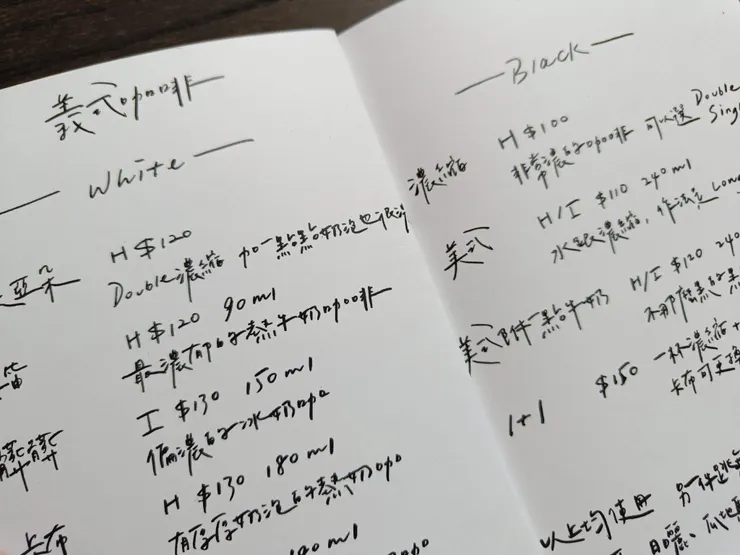 義式咖啡
White
H $120
亞朵 Double濃縮 加一點點奶泡也很
H $120 90ml
笛 最濃郁的熱牛奶咖啡
I $130 150ml
偏濃的冰奶咖
H $130 180ml
卡布 有厚厚奶泡的熱奶咖
Black
H $100
濃縮 非常濃的咖啡 可以選 Double
H/I $110 240ml
美式 水跟濃縮,作法是 Long
美式附一點牛奶 H/I $120 240
不那麼黑的
1+1 $150 一杯濃縮+
卡布可更換
以上均使用